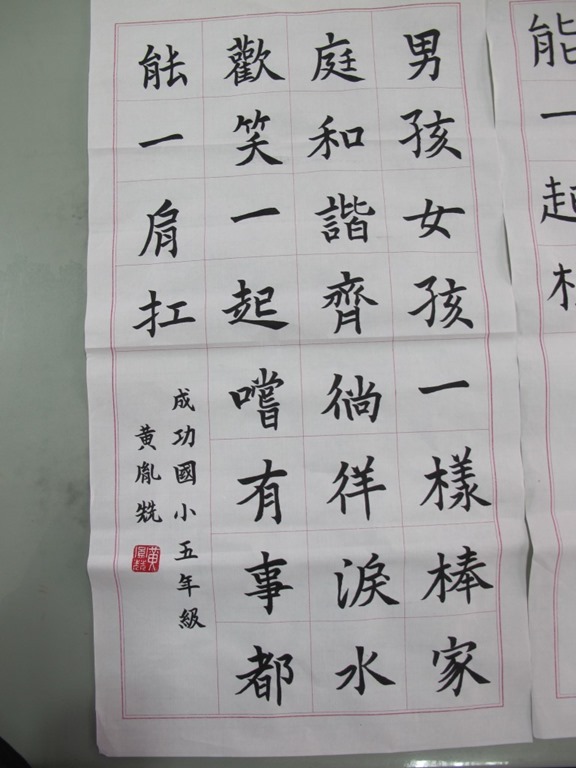 男孩女孩一樣棒家
庭和諧齊徜徉淚水
歡笑一起嚐有事都
能一肩扛
成功國小五年級
黃胤兟
能一起